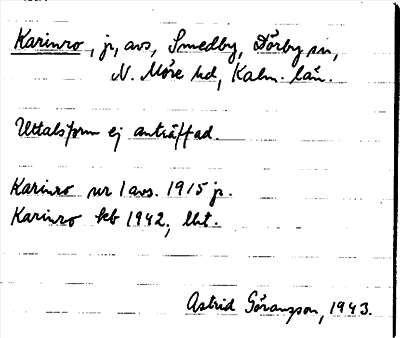 Karinro, jr, avs, Smedby, Dörby sn,
N. Möre hd, Kalm. län.
Uttalsform ej anträffad.
Karinro nr 1 avs. 1915 jr.
Karinro kb 1942, lht.
Astrid Göransson, 1943.